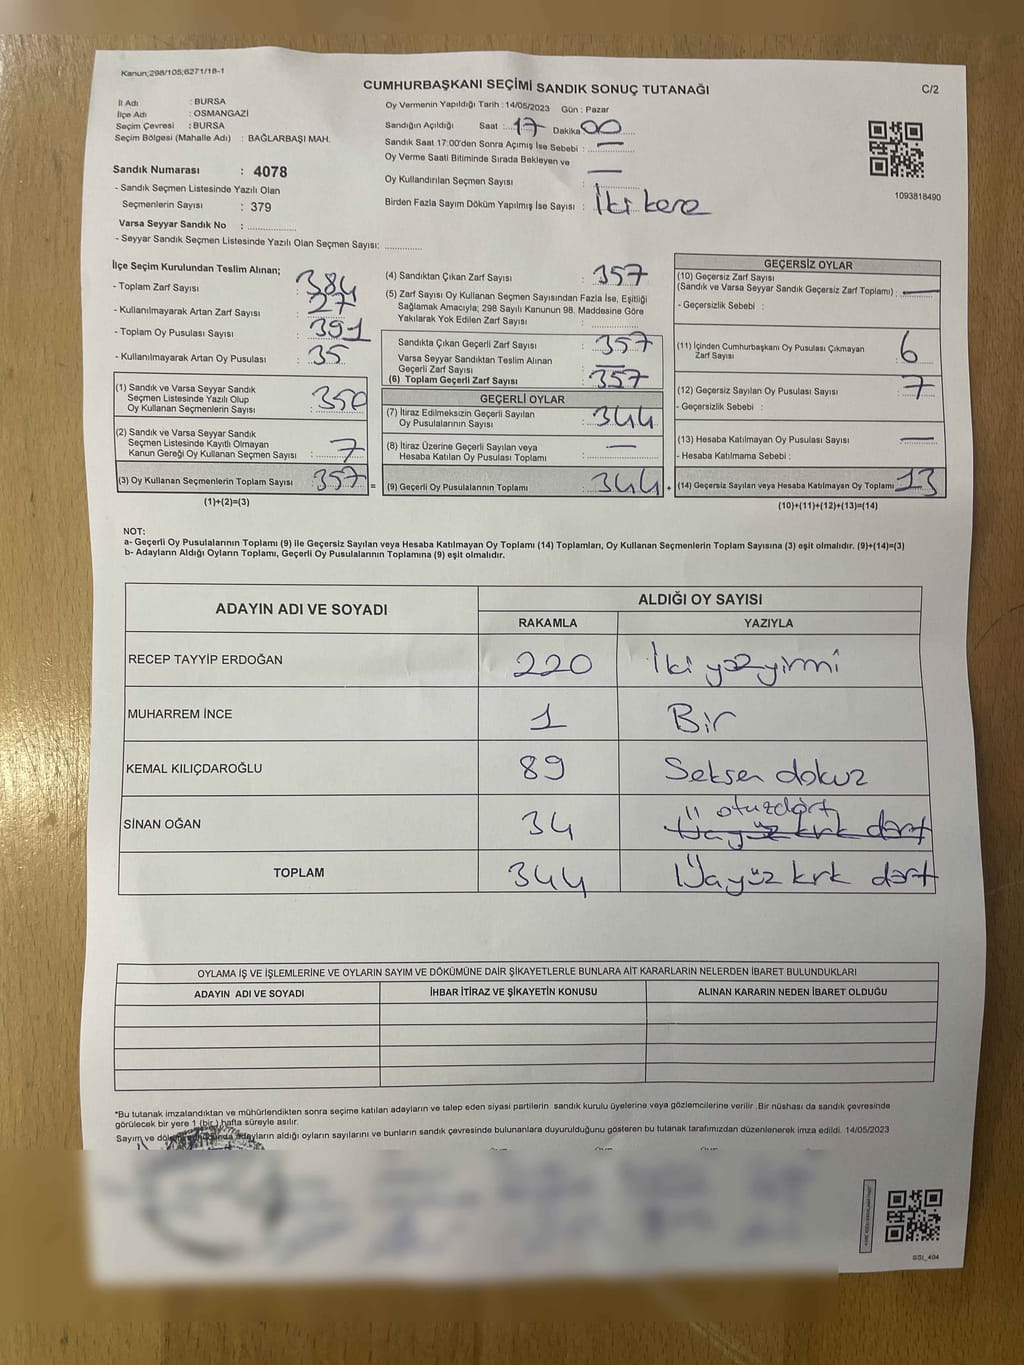 Kanun;298/105;6271/18-1
CUMHURBAŞKANI SEÇİMİ SANDIK SONUÇ TUTANAĞI
C/2
İl Adı : BURSA
İlçe Adı : OSMANGAZİ
Seçim Çevresi : BURSA
Seçim Bölgesi (Mahalle Adı) : BAĞLARBAŞI MAH.
Oy Vermenin Yapıldığı Tarih : 14/05/2023 Gün : Pazar
Sandığın Açıldığı Saat : 17 Dakika 00
Sandık Saat 17:00'den Sonra Açımış İse Sebebi : —
Oy Verme Saati Bitiminde Sırada Bekleyen ve
Oy Kullandırılan Seçmen Sayısı : —
Birden Fazla Sayım Döküm Yapılmış İse Sayısı : İki kere
1093818490
Sandık Numarası : 4078
- Sandık Seçmen Listesinde Yazılı Olan
Seçmenlerin Sayısı : 379
Varsa Seyyar Sandık No : ...............
- Seyyar Sandık Seçmen Listesinde Yazılı Olan Seçmen Sayısı: ............
İlçe Seçim Kurulundan Teslim Alınan;
- Toplam Zarf Sayısı : 384
- Kullanılmayarak Artan Zarf Sayısı : 27
- Toplam Oy Pusulası Sayısı : 391
- Kullanılmayarak Artan Oy Pusulası : 35
(1) Sandık ve Varsa Seyyar Sandık
Seçmen Listesinde Yazılı Olup
Oy Kullanan Seçmenlerin Sayısı : 350
(2) Sandık ve Varsa Seyyar Sandık
Seçmen Listesinde Kayıtlı Olmayan
Kanun Gereği Oy Kullanan Seçmen Sayısı : 7
(3) Oy Kullanan Seçmenlerin Toplam Sayısı : 357 =
(1)+(2)=(3)
(4) Sandıktan Çıkan Zarf Sayısı : 357
(5) Zarf Sayısı Oy Kullanan Seçmen Sayısından Fazla İse, Eşitliği
Sağlamak Amacıyla; 298 Sayılı Kanunun 98. Maddesine Göre
Yakılarak Yok Edilen Zarf Sayısı : ..............
Sandıkta Çıkan Geçerli Zarf Sayısı : 357
Varsa Seyyar Sandıktan Teslim Alınan
Geçerli Zarf Sayısı : —
(6) Toplam Geçerli Zarf Sayısı : 357
GEÇERLİ OYLAR
(7) İtiraz Edilmeksizin Geçerli Sayılan
Oy Pusulalarının Sayısı : 344
(8) İtiraz Üzerine Geçerli Sayılan veya
Hesaba Katılan Oy Pusulası Toplamı : —
(9) Geçerli Oy Pusulalarının Toplamı : 344 +
GEÇERSİZ OYLAR
(10) Geçersiz Zarf Sayısı
(Sandık ve Varsa Seyyar Sandık Geçersiz Zarf Toplamı) : —
- Geçersizlik Sebebi :
(11) İçinden Cumhurbaşkanı Oy Pusulası Çıkmayan
Zarf Sayısı : 6
(12) Geçersiz Sayılan Oy Pusulası Sayısı : 7
- Geçersizlik Sebebi :
(13) Hesaba Katılmayan Oy Pusulası Sayısı : —
- Hesaba Katılmama Sebebi :
(14) Geçersiz Sayılan veya Hesaba Katılmayan Oy Toplamı : 13
(10)+(11)+(12)+(13)=(14)
NOT:
a- Geçerli Oy Pusulalarının Toplamı (9) ile Geçersiz Sayılan veya Hesaba Katılmayan Oy Toplamı (14) Toplamları, Oy Kullanan Seçmenlerin Toplam Sayısına (3) eşit olmalıdır. (9)+(14)=(3)
b- Adayların Aldığı Oyların Toplamı, Geçerli Oy Pusulalarının Toplamına (9) eşit olmalıdır.
ADAYIN ADI VE SOYADI ALDIĞI OY SAYISI
RAKAMLA YAZIYLA
RECEP TAYYİP ERDOĞAN 220 İki yüzyirmi
MUHARREM İNCE 1 Bir
KEMAL KILIÇDAROĞLU 89 Seksen dokuz
otuzdört
SİNAN OĞAN 34 Üçyüz kırk dört
TOPLAM 344 Üçyüz kırk dört
OYLAMA İŞ VE İŞLEMLERİNE VE OYLARIN SAYIM VE DÖKÜMÜNE DAİR ŞİKAYETLERLE BUNLARA AİT KARARLARIN NELERDEN İBARET BULUNDUKLARI
ADAYIN ADI VE SOYADI İHBAR İTİRAZ VE ŞİKAYETİN KONUSU ALINAN KARARIN NEDEN İBARET OLDUĞU
*Bu tutanak imzalandıktan ve mühürlendikten sonra seçime katılan adayların ve talep eden siyasi partilerin sandık kurulu üyelerine veya gözlemcilerine verilir .Bir nüshası da sandık çevresinde
görülecek bir yere 1 (bir ) hafta süreyle asılır.
Sayım ve döküm sonucunda adayların aldığı oyların sayılarını ve bunların sandık çevresinde bulunanlara duyurulduğunu gösteren bu tutanak tarafımızdan düzenlenerek imza edildi. 14/05/2023
SSI_404